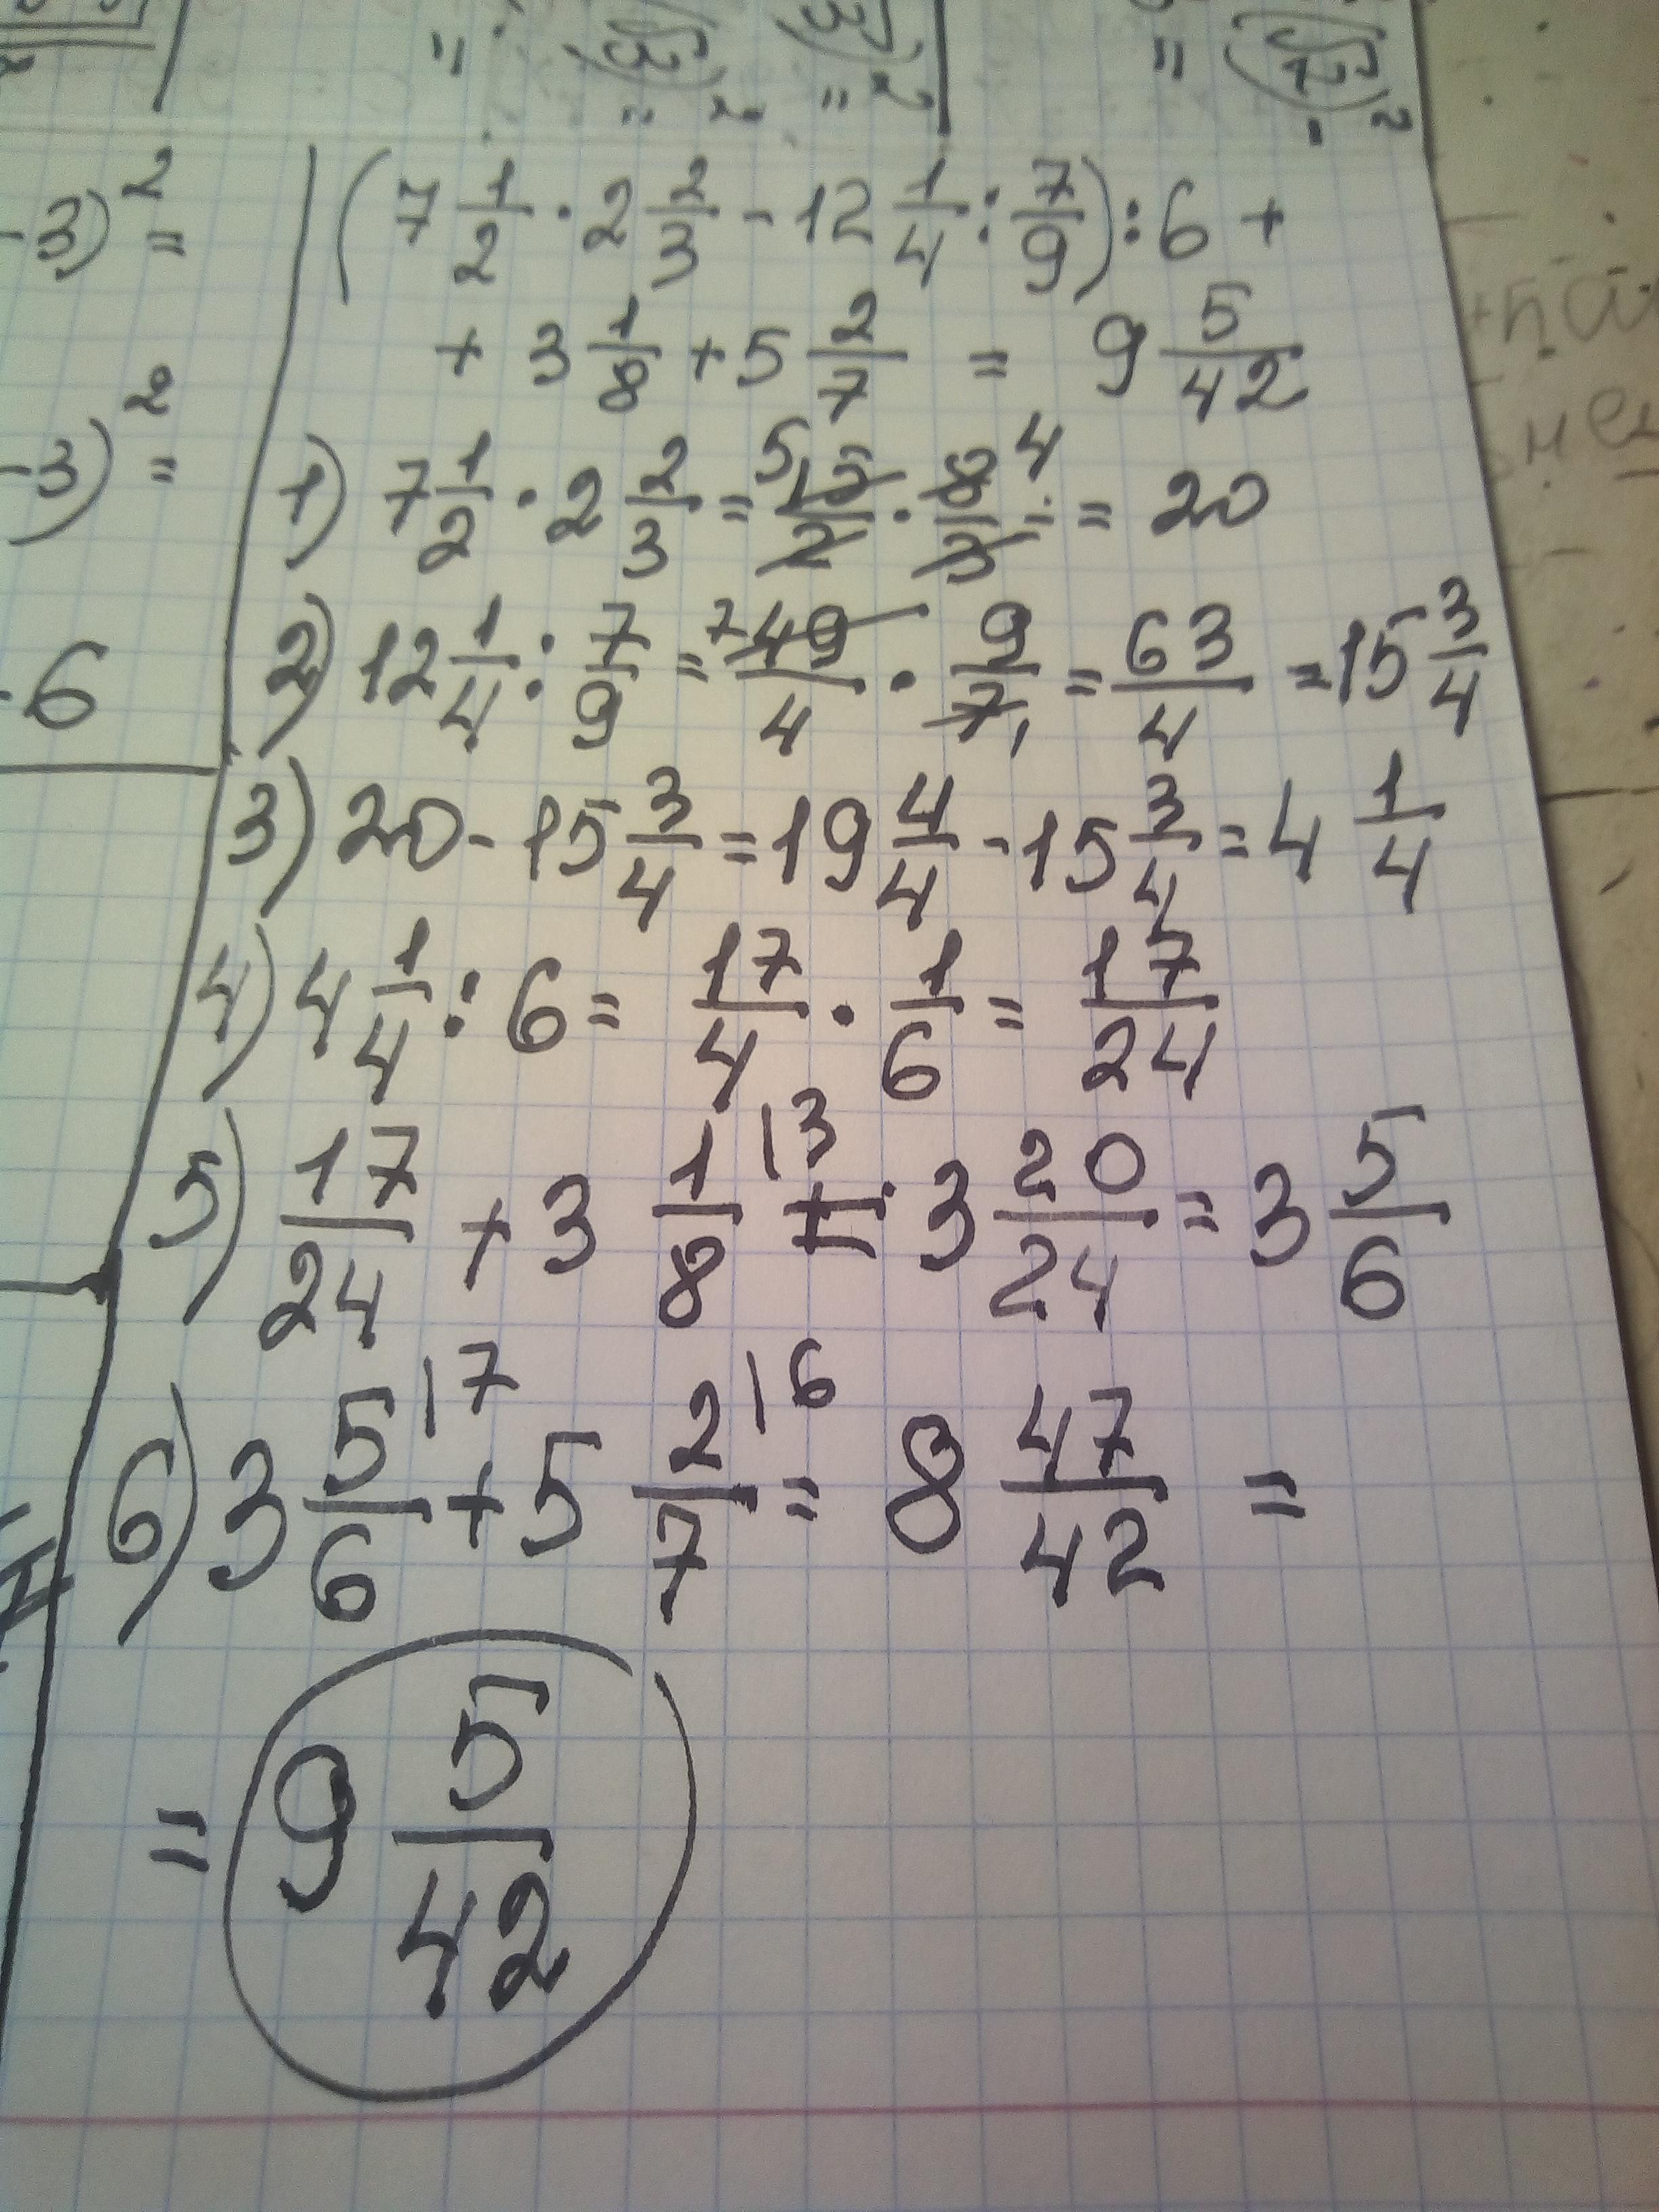 -3)² =
-3)² =
-6
(7 1/2 · 2 2/3 - 12 1/4 : 7/9) : 6 +
+ 3 1/8 + 5 2/7 = 9 5/42
1) 7 1/2 · 2 2/3 = 15/2 · 8/3 = 20
2) 12 1/4 : 7/9 = 49/4 · 9/7 = 63/4 = 15 3/4
3) 20 - 15 3/4 = 19 4/4 - 15 3/4 = 4 1/4
4) 4 1/4 : 6 = 17/4 · 1/6 = 17/24
5) 17/24 + 3 1/8 |3 = 3 20/24 = 3 5/6
6) 3 5/6 |7 + 5 2/7 |6 = 8 47/42 =
= 9 5/42